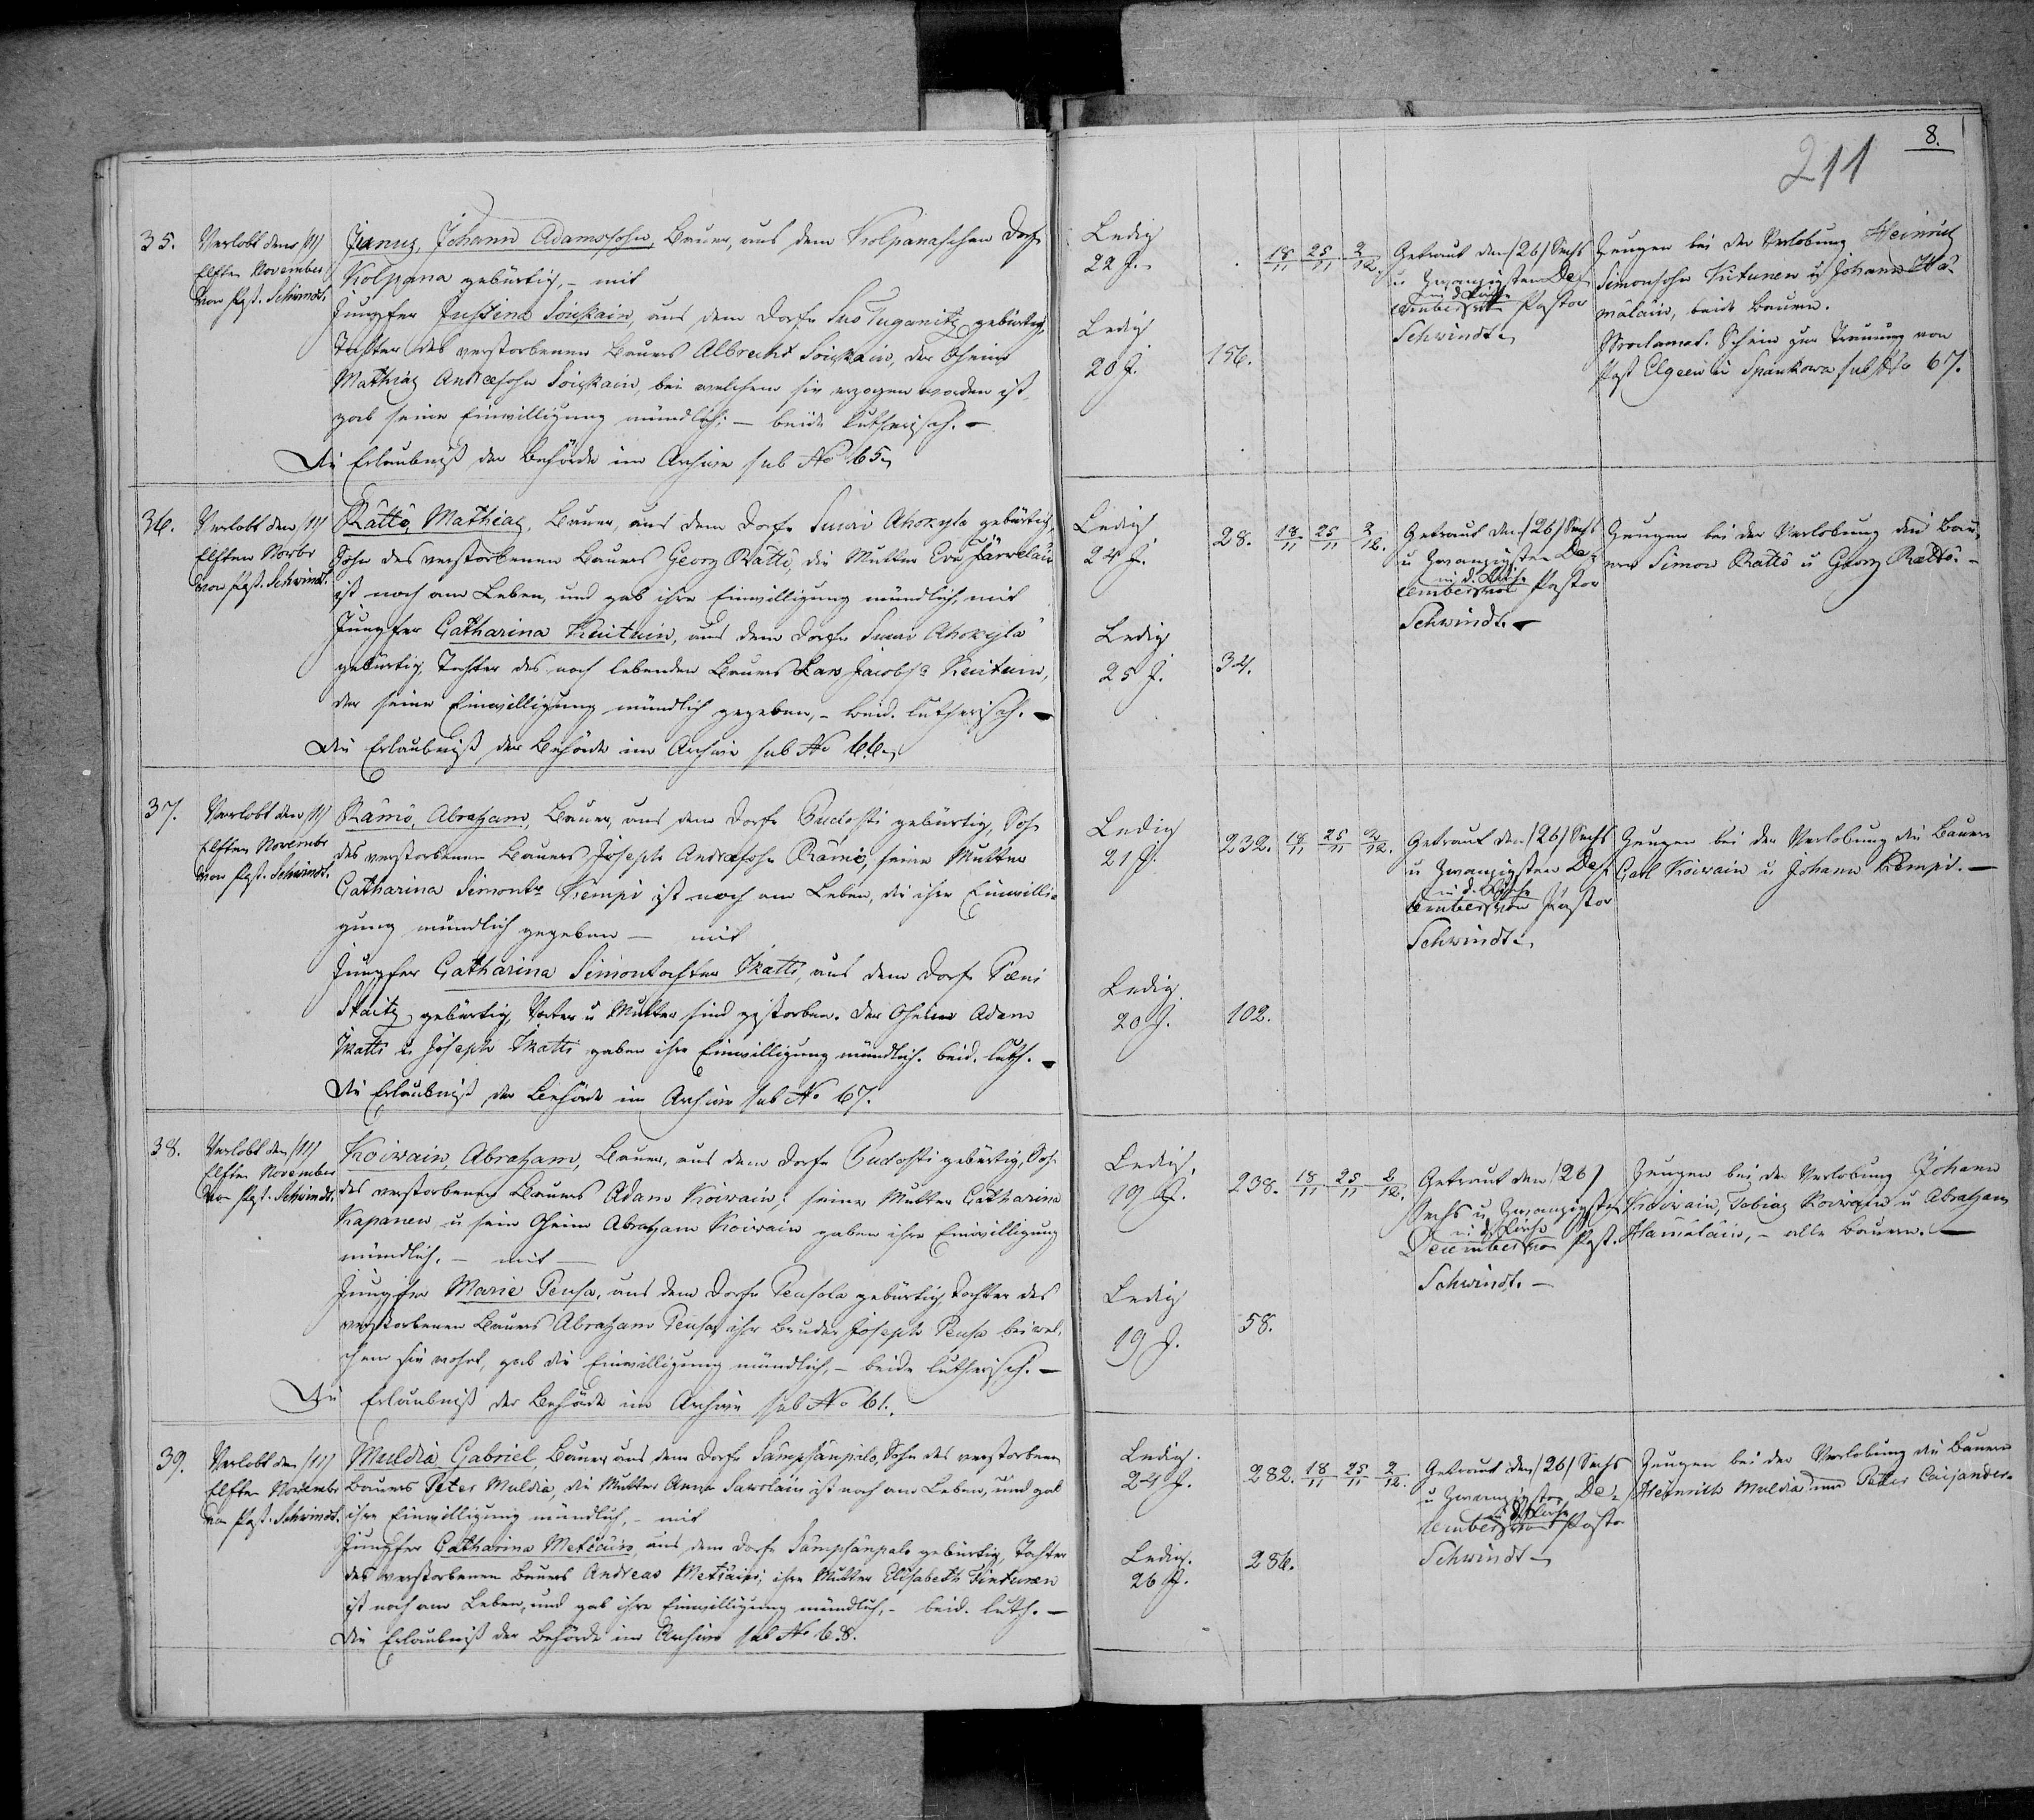 8.
211
35.
Verlobt den /11/
Elften November
von Past. Schwindt.
Janus, Johann Adamssohn, Bauer, aus dem Kolpanaschen Dorf
Kolpana gebürtig, – mit
Jungfer Justina Soiskain, aus dem Dorfe Suo Puganitz gebürtig,
Tochter des verstorbenen Bauers Albrecht Soiskain, der Oheim
Mathias Andreæsohn Soiskain, bei welchem sie erzogen worden ist,
gab seine Einwilligung mündlich; – beide lutherisch. –
Die Erlaubniß der Behörde im Archive sub No 65.
Ledig
22 J.
Ledig
20 J.
156.
18/11 25/11 2/12.
Getraut den /26/ Sechs
u Zwanzigsten De-
in d. Kirche
cember von Pastor
Schwindt.
Zeugen bei der Verlobung Heinrich
Simonsohn Kutunen u Johann Hä-
mäläin, beide Bauern.
Proclamat. Schein zur Trauung von
Past Elgeen in Spankowa sub No 67.
36.
Verlobt den /11/
Elften Novbr
von Past. Schwindt.
Rättö, Mathias, Bauer, aus dem Dorfe Suuri Ahokylä gebürtig,
Sohn des verstorbenen Bauers Georg Rättö, die Mutter Eva Järwelain
ist noch am Leben, und gab ihre Einwilligung mündlich, mit
Jungfer Catharina Keutuin, aus dem Dorfe Suuri Ahokylä
gebürtig, Tochter des noch lebenden Bauers Lars Jacobs. Keutuin,
der seine Einwilligung mündlich gegeben, – beid. lutherisch. –
Die Erlaubniß der Behörde im Archive sub No 66.
Ledig
24 J.
Ledig
25 J.
28.
34.
18/11 25/11 2/12.
Getraut den /26/ Sechs
u Zwanzigsten De-
in d. Kirche
cember von Pastor
Schwindt. –
Zeugen bei der Verlobung die Bau-
ern Simon Rättö u Georg Rättö. –
37.
Verlobt den /11/
Elften Novembr
von Past. Schwindt.
Rämö, Abraham, Bauer, aus dem Dorfe Pudosti gebürtig, Sohn
des verstorbenen Bauers Joseph Andreæsohn Rämö, seine Mutter
Catharina Simontr. Kempi ist noch am Leben, die ihre Einwilli-
gung mündlich gegeben – mit
Jungfer Catharina Simontochter Ikatti, aus dem Dorfe Pæni
Staitz gebürtig, Vater u Mutter sind gestorben. Der Oheim Adam
Ikatti u Joseph Ikatti gaben ihre Einwilligung mündlich. beid. luth. –
Die Erlaubniß der Behörde im Archive sub No 67.
Ledig
21 J.
Ledig.
20 J.
232.
102.
18/11 25/11 2/12.
Getraut den /26/ Sechs
u Zwanzigsten De-
in d. Kirche
cember von Pastor
Schwindt.
Zeugen bei der Verlobung die Bauern
Carl Koiwain u Johann Kempi. –
38.
Verlobt den /11/
Elften November
von Past. Schwindt.
Koiwain, Abraham, Bauer, aus dem Dorfe Pudosti gebürtig, Sohn
des verstorbenen Bauers Adam Koiwain; seine Mutter Catharina
Kapanen u sein Oheim Abraham Koiwain gaben ihre Einwilligung
mündlich. – mit –
Jungfer Marie Peusa, aus dem Dorfe Peusola gebürtig, Tochter des
verstorbenen Bauers Abraham Peusa, ihr Bruder Joseph Peusa bei wel-
chem sie wohnt, gab die Einwilligung mündlich, – beide lutherisch. –
Die Erlaubniß der Behörde im Archive sub No 61.
Ledig.
19 J.
Ledig
19 J.
238.
58.
18/11 25/11 2/12.
Getraut den /26/
Sechs u Zwanzigsten
in d. Kirche
December von Past.
Schwindt. –
Zeugen bei der Verlobung Johann
Koiwain, Tobias Koiwain u Abraham
Hämäläin, – alle Bauern. –
39.
Verlobt den /11/
Elften Novembr
von Past. Schwindt.
Muldia Gabriel, Bauer aus dem Dorfe Sampsänpalo, Sohn des verstorbenen
Bauers Peter Muldia, die Mutter Anna Sawolain ist noch am Leben, und gab
ihre Einwilligung mündlich, – mit
Jungfer Catharina Metsäin, aus dem Dorfe Sampsänpalo gebürtig, Tochter
des verstorbenen Bauers Andreas Metsäin; ihre Mutter Elisabeth Kinturen
ist noch am Leben, und gab ihre Einwilligung mündlich, – beid. luth. –
Die Erlaubniß der Behörde im Archive sub No 68.
Ledig.
24 J.
Ledig.
26 J.
282.
286.
18/11 25/11 2/12.
Getraut den /26/ Sechs
u Zwanzigsten De-
in d. Kirche
cember von Pastor
Schwindt
Zeugen bei der Verlobung die Bauern
Heinrich Muldia und Peter Caijander.